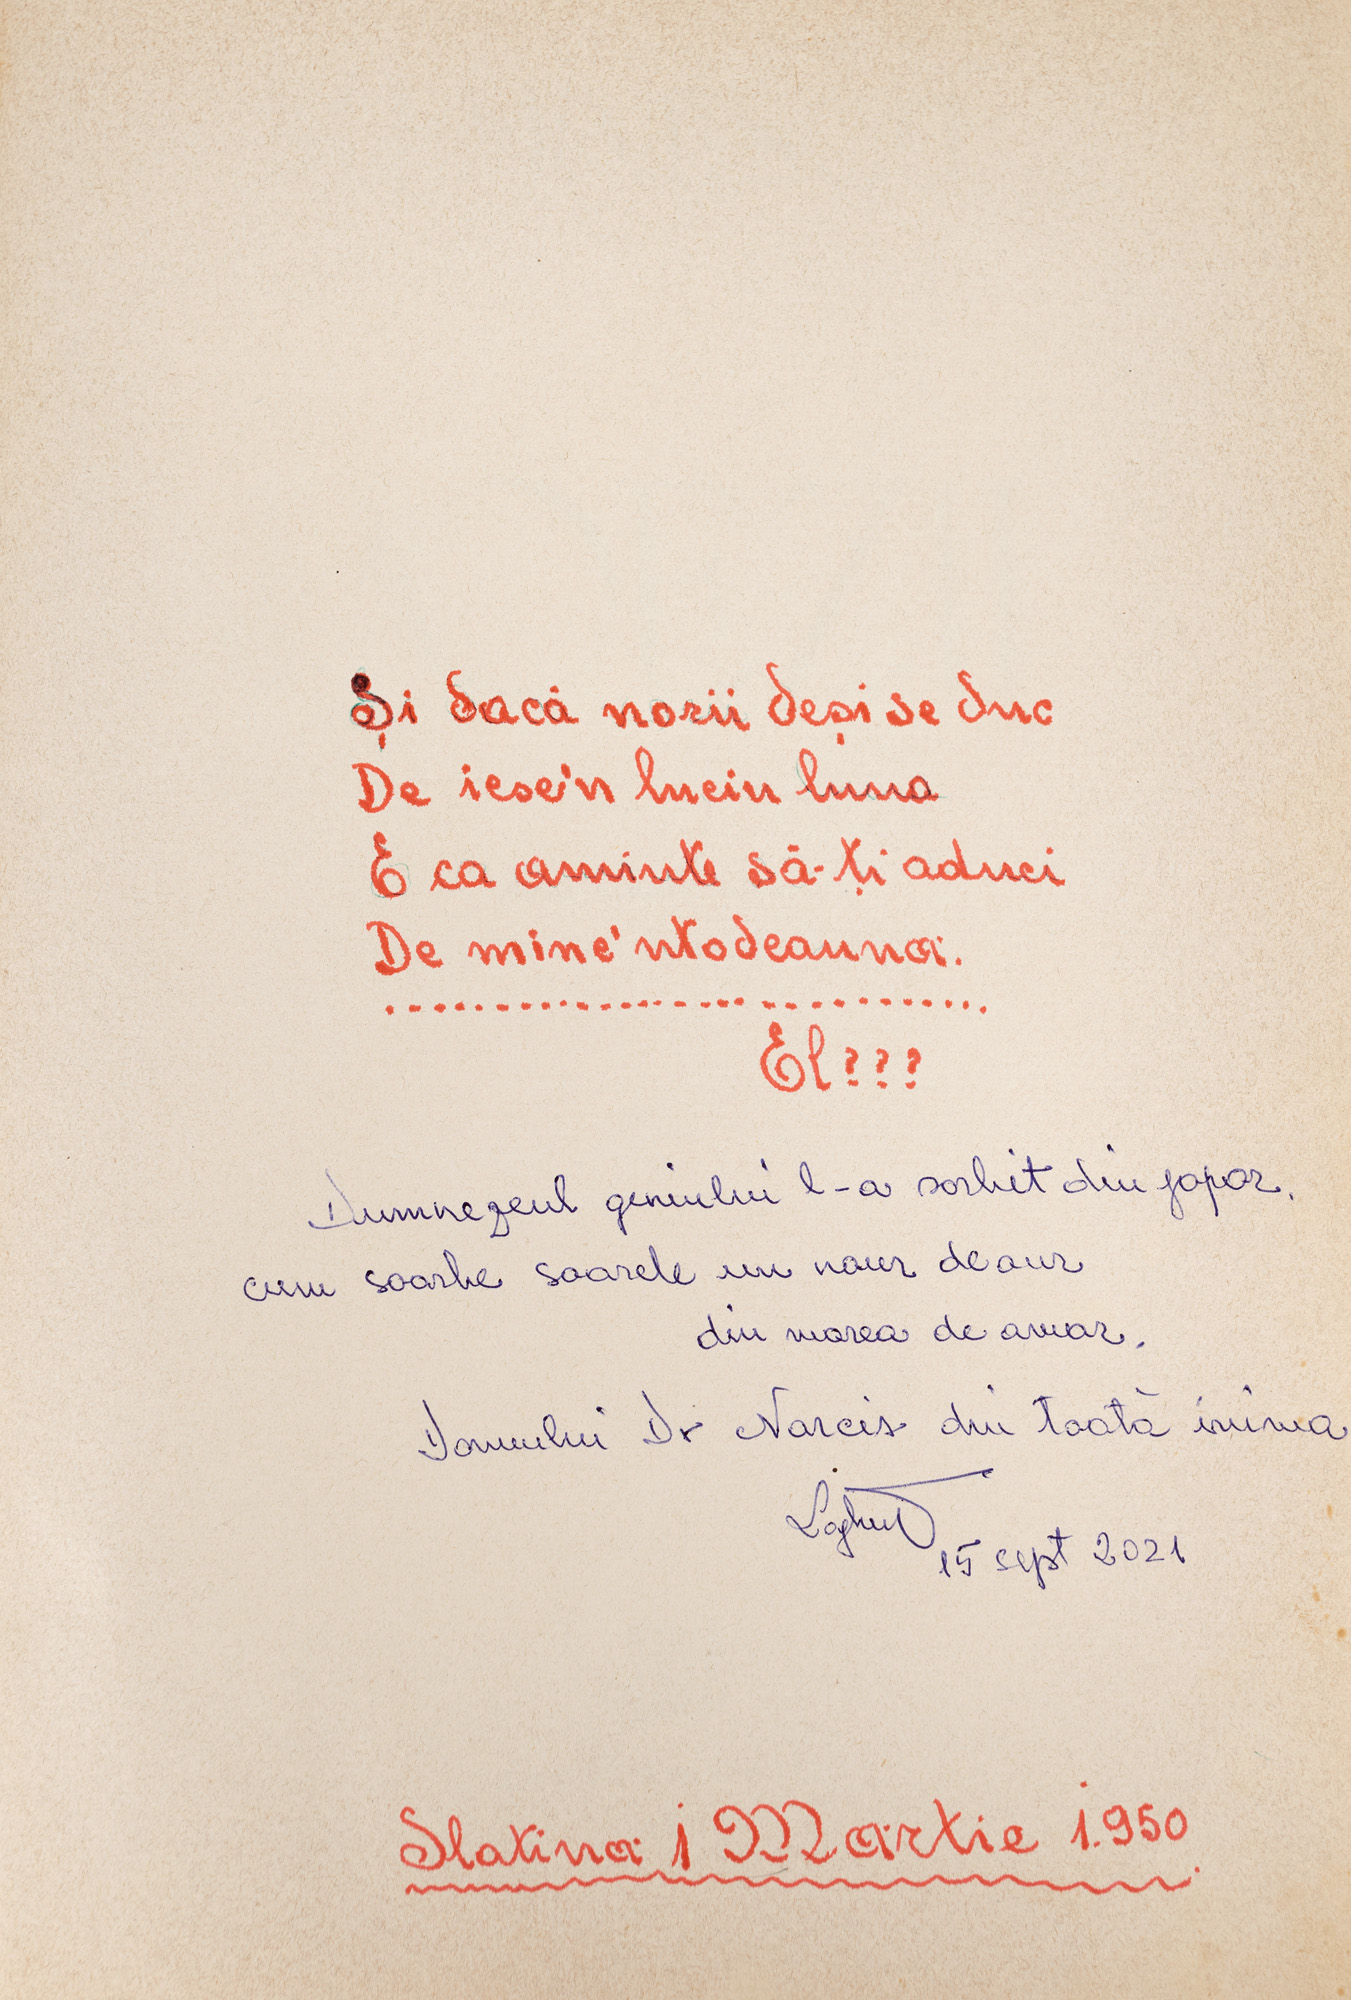 Și dacă norii deși se duc
De iese'n luciu luna
E ca aminte să-ți aduci
De mine'ntodeauna.
..............................
El???
Dumnezeul geniului l-a sorbit din popor,
cum soarbe soarele un nour de aur
din marea de amar.
Domnului Dr Narcis din toată inima
15 sept 2021
Slatina 1 Martie 1.950